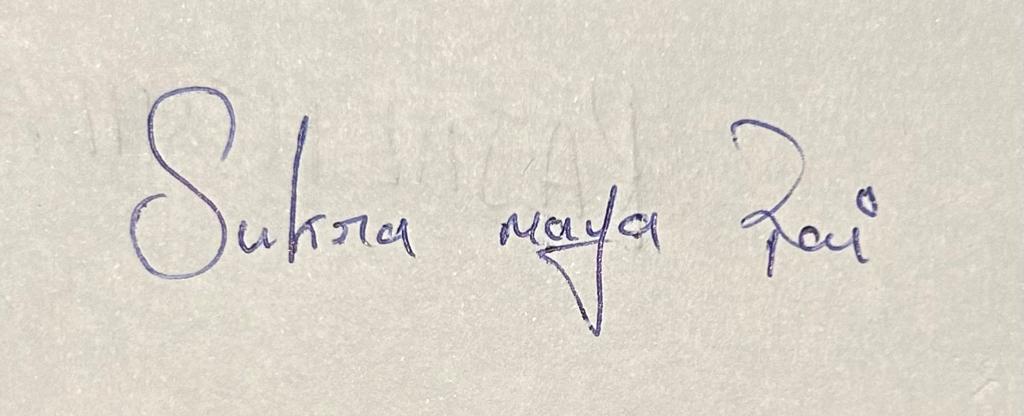 Sukra maya Rai